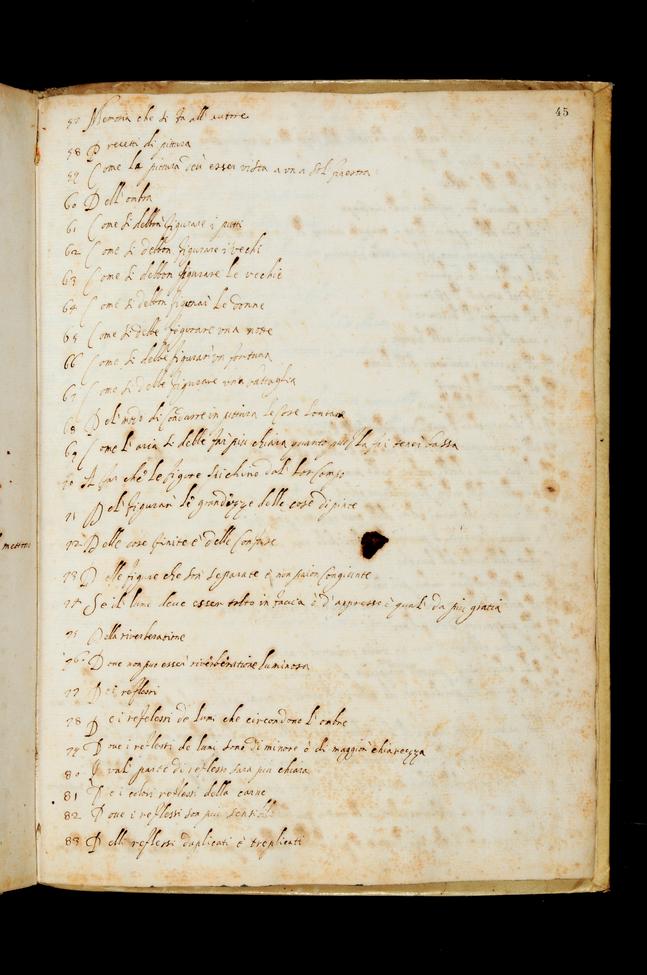 45
57 Memoria che si fa all'autore
58 Precetti di pittura
59 Come la pittura deù esser vista a vna sol finestra
60 Dell'ombra
61 Come si debbon figurare i putti
62 Come si debbon figurare i vechi
63 Come si debbon figurare le vechie
64 Come si debbon figurare le donne
65 Come si debbe figurare vna notte
66 Come si debbe figurar vn fortuna
67 Come si debbe figurare vna battaglia
68 Del modo di condurre in pittura le cose lontane
69 Come l'aria si debbe far più chiara quanto più la fai finir bassa
70 A far che le figure spichino dal lor campo
71 Del figurar le grandezze delle cose dipinte
72 Delle cose finite è delle confuse
73 Delle figure che son separate è non paion congiunte
74 Se il lume deve esser tolto in faccia ò d'appresso è qual da più gratia
75 Della riverberatione
76 Doue non può esser riverberatione luminosa
77 De i reflessi
78 De i reflessi de lumi che circondono l'ombre
79 Doue i reflessi de lumi sono di minore ò di maggior chiarezza
80 Qual parte di reflesso sarà più chiara
81 De i colori reflessi della carne
82 Doue i reflessi son più sensibili
83 Delli reflessi duplicati è treplicati
mettono